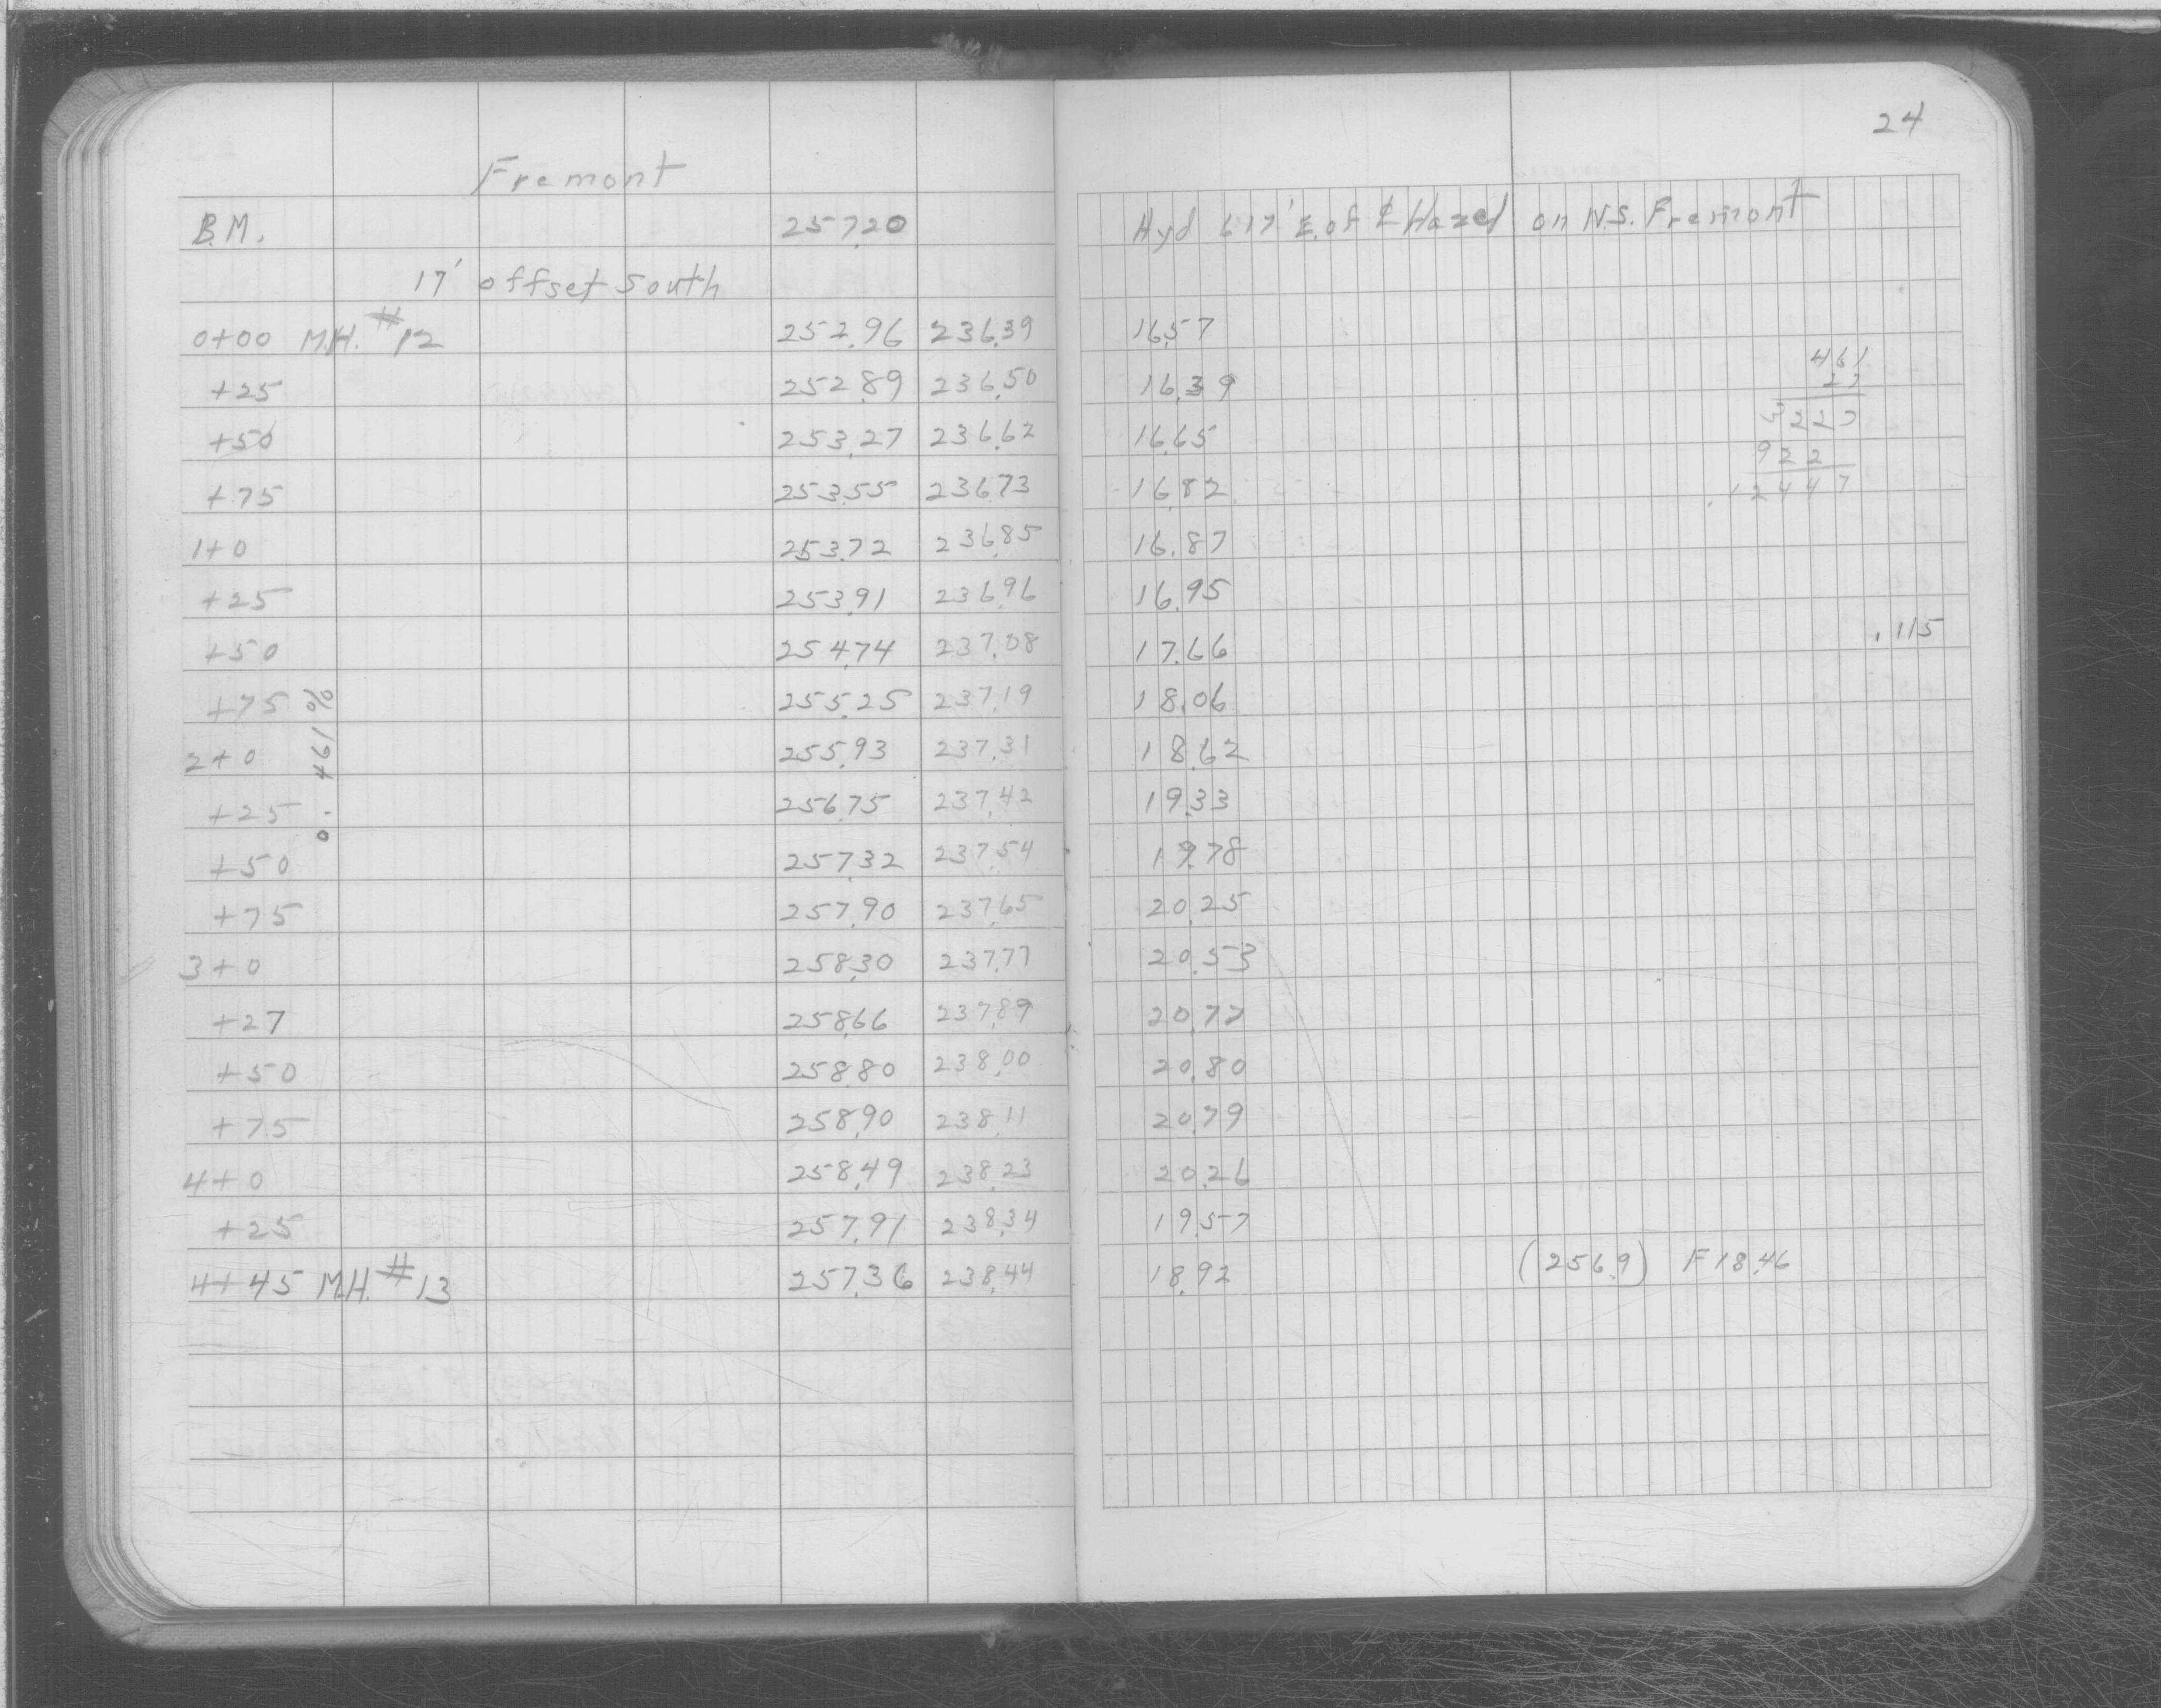 24
Fremont
B.M. 257.20 Hyd 617' E. of ℄ Hazel on N.S. Fremont
17' offset South
0+00 M.H. #12 252.96 236.39 16.57
+25 252.89 236.50 16.39
+50 253.27 236.62 16.65
+75 253.55 236.73 16.82
1+0 253.72 236.85 16.87
+25 253.91 236.96 16.95
+50 254.74 237.08 17.66
+75 255.25 237.19 18.06
2+0 255.93 237.31 18.62
+25 256.75 237.42 19.33
+50 257.32 237.54 19.78
+75 257.90 237.65 20.25
3+0 258.30 237.77 20.53
+27 258.66 237.89 20.77
+50 258.80 238.00 20.80
+75 258.90 238.11 20.79
4+0 258.49 238.23 20.26
+25 257.91 238.34 19.57
4+45 M.H. #13 257.36 238.44 18.92 (256.9) F18.46
0.461%
461
27
3227
922
.12447
.115